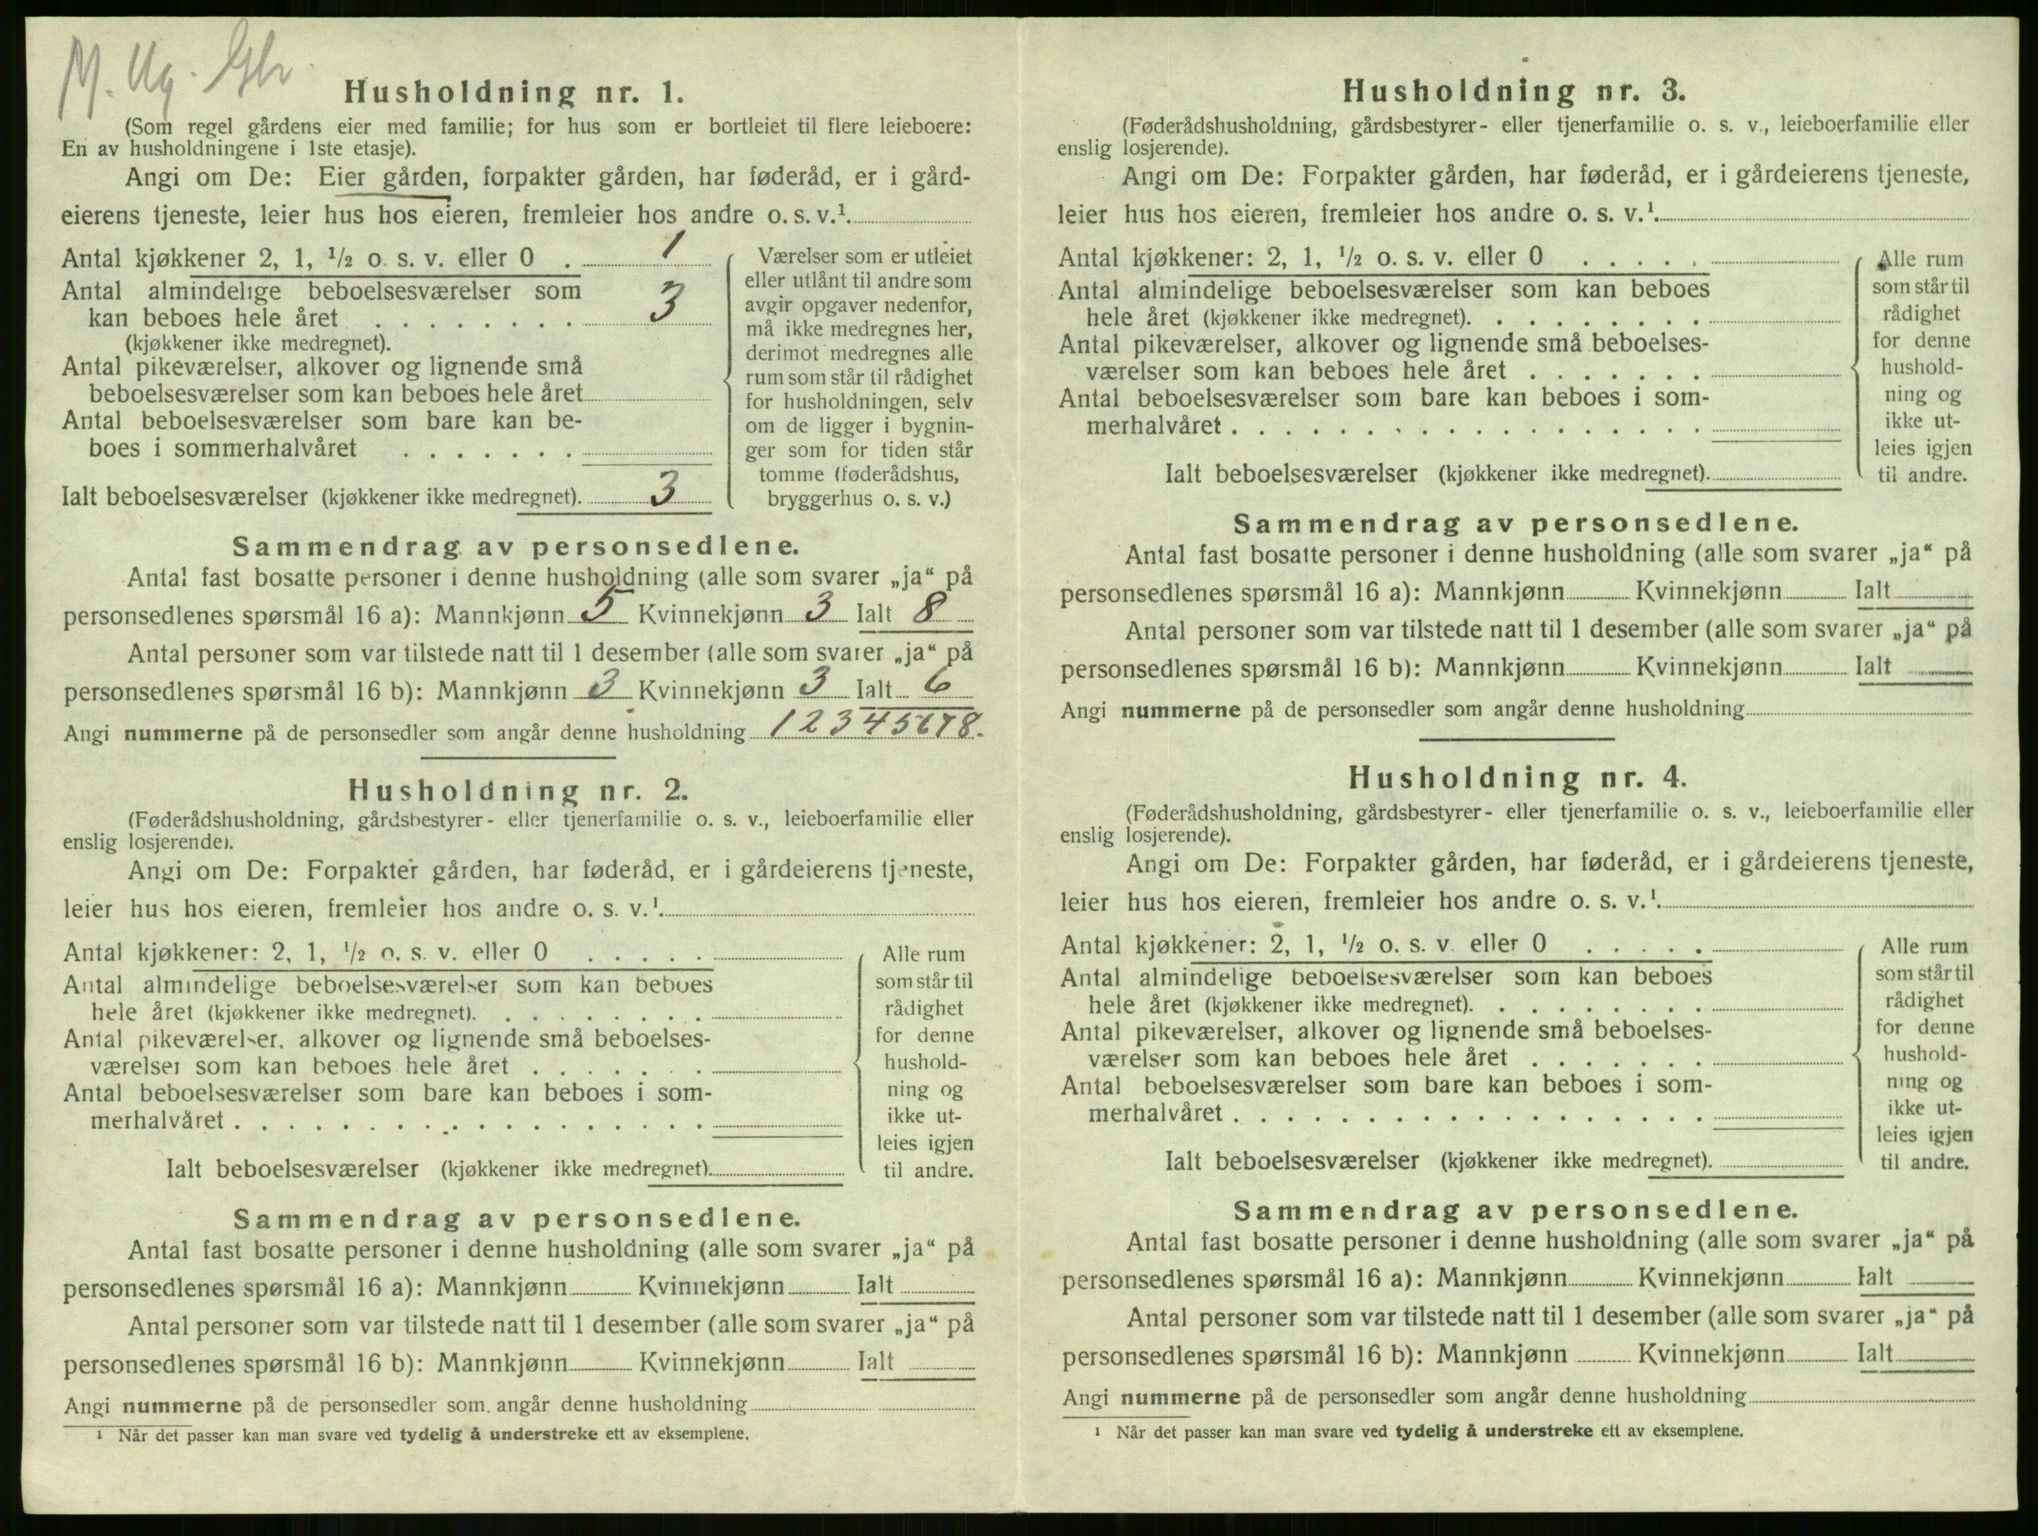 M. Ug. Gbr.
Husholdning nr. 1.
(Som regel gårdens eier med familie; for hus som er bortleiet til flere leieboere:
En av husholdningene i 1ste etasje).
Angi om De: Eier gården, forpakter gården, har føderåd, er i gård-
eierens tjeneste, leier hus hos eieren, fremleier hos andre o. s. v.¹.
Antal kjøkkener 2, 1, ½ o. s. v. eller 0 . 1
Antal almindelige beboelsesværelser som
kan beboes hele året . . . . . . . . 3
(kjøkkener ikke medregnet).
Antal pikeværelser, alkover og lignende små
beboelsesværelser som kan beboes hele året
Antal beboelsesværelser som bare kan be-
boes i sommerhalvåret . . . . . . .
Ialt beboelsesværelser (kjøkkener ikke medregnet). 3
Værelser som er utleiet
eller utlånt til andre som
avgir opgaver nedenfor,
må ikke medregnes her,
derimot medregnes alle
rum som står til rådighet
for husholdningen, selv
om de ligger i bygnin-
ger som for tiden står
tomme (føderådshus,
bryggerhus o. s. v.)
Sammendrag av personsedlene.
Antal fast bosatte personer i denne husholdning (alle som svarer „ja“ på
personsedlenes spørsmål 16 a): Mannkjønn 5 Kvinnekjønn 3 Ialt 8
Antal personer som var tilstede natt til 1 desember (alle som svarer „ja“ på
personsedlenes spørsmål 16 b): Mannkjønn 3 Kvinnekjønn 3 Ialt 6
Angi nummerne på de personsedler som angår denne husholdning 12345678.
Husholdning nr. 2.
(Føderådshusholdning, gårdsbestyrer- eller tjenerfamilie o. s. v., leieboerfamilie eller
enslig losjerende).
Angi om De: Forpakter gården, har føderåd, er i gårdeierens tjeneste,
leier hus hos eieren, fremleier hos andre o. s. v.¹.
Antal kjøkkener: 2, 1, ½ o. s. v. eller 0 . . . . .
Antal almindelige beboelsesværelser som kan beboes
hele året (kjøkkener ikke medregnet). . . . . . . . .
Antal pikeværelser, alkover og lignende små beboelses-
værelser som kan beboes hele året . . . . . . .
Antal beboelsesværelser som bare kan beboes i som-
merhalvåret . . . . . . . . . . . . . . . . . .
Ialt beboelsesværelser (kjøkkener ikke medregnet).
Alle rum
som står til
rådighet
for denne
hushold-
ning og
ikke ut-
leies igjen
til andre.
Sammendrag av personsedlene.
Antal fast bosatte personer i denne husholdning (alle som svarer „ja“ på
personsedlenes spørsmål 16 a): Mannkjønn Kvinnekjønn Ialt
Antal personer som var tilstede natt til 1 desember (alle som svarer „ja“ på
personsedlenes spørsmål 16 b): Mannkjønn Kvinnekjønn Ialt
Angi nummerne på de personsedler som angår denne husholdning
¹ Når det passer kan man svare ved tydelig å understreke ett av eksemplene.
Husholdning nr. 3.
(Føderådshusholdning, gårdsbestyrer- eller tjenerfamilie o. s. v., leieboerfamilie eller
enslig losjerende).
Angi om De: Forpakter gården, har føderåd, er i gårdeierens tjeneste,
leier hus hos eieren, fremleier hos andre o. s. v.¹.
Antal kjøkkener: 2, 1, ½ o. s. v. eller 0 . . . . .
Antal almindelige beboelsesværelser som kan beboes
hele året (kjøkkener ikke medregnet). . . . . . . . .
Antal pikeværelser, alkover og lignende små beboelses-
værelser som kan beboes hele året . . . . . . .
Antal beboelsesværelser som bare kan beboes i som-
merhalvåret . . . . . . . . . . . . . . . . . .
Ialt beboelsesværelser (kjøkkener ikke medregnet).
Alle rum
som står til
rådighet
for denne
hushold-
ning og
ikke ut-
leies igjen
til andre.
Sammendrag av personsedlene.
Antal fast bosatte personer i denne husholdning (alle som svarer „ja“ på
personsedlenes spørsmål 16 a): Mannkjønn Kvinnekjønn Ialt
Antal personer som var tilstede natt til 1 desember (alle som svarer „ja“ på
personsedlenes spørsmål 16 b): Mannkjønn Kvinnekjønn Ialt
Angi nummerne på de personsedler som angår denne husholdning
Husholdning nr. 4.
(Føderådshusholdning, gårdsbestyrer- eller tjenerfamilie o. s. v., leieboerfamilie eller
enslig losjerende).
Angi om De: Forpakter gården, har føderåd, er i gårdeierens tjeneste,
leier hus hos eieren, fremleier hos andre o. s. v.¹.
Antal kjøkkener: 2, 1, ½ o. s. v. eller 0 . . . . .
Antal almindelige beboelsesværelser som kan beboes
hele året (kjøkkener ikke medregnet). . . . . . . . .
Antal pikeværelser, alkover og lignende små beboelses-
værelser som kan beboes hele året . . . . . . .
Antal beboelsesværelser som bare kan beboes i som-
merhalvåret . . . . . . . . . . . . . . . . . .
Ialt beboelsesværelser (kjøkkener ikke medregnet).
Alle rum
som står til
rådighet
for denne
hushold-
ning og
ikke ut-
leies igjen
til andre.
Sammendrag av personsedlene.
Antal fast bosatte personer i denne husholdning (alle som svarer „ja“ på
personsedlenes spørsmål 16 a): Mannkjønn Kvinnekjønn Ialt
Antal personer som var tilstede natt til 1 desember (alle som svarer „ja“ på
personsedlenes spørsmål 16 b): Mannkjønn Kvinnekjønn Ialt
Angi nummerne på de personsedler som angår denne husholdning
¹ Når det passer kan man svare ved tydelig å understreke ett av eksemplene.